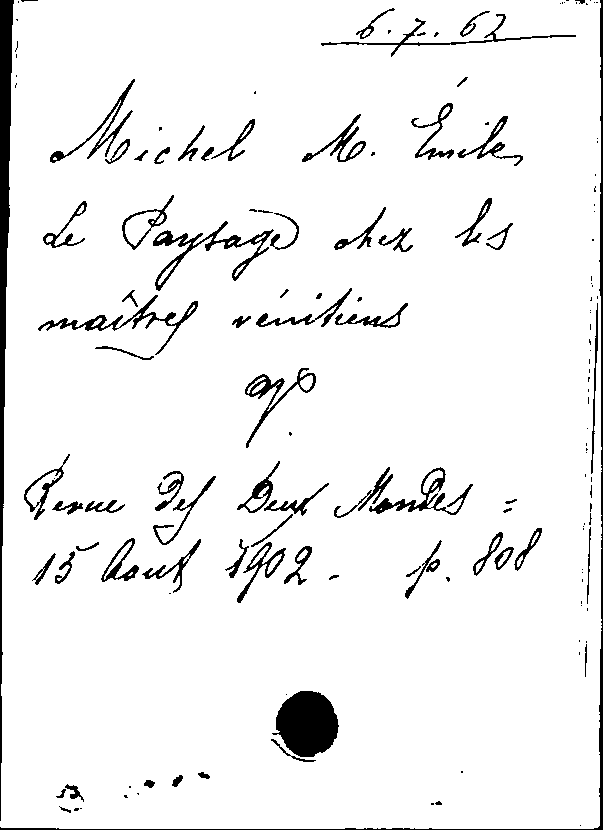 6.7.62
Michel M. Émile
Le Paysage chez les
maîtres vénitiens
Revue des Deux Mondes =
15 Aout 1902 - p. 808